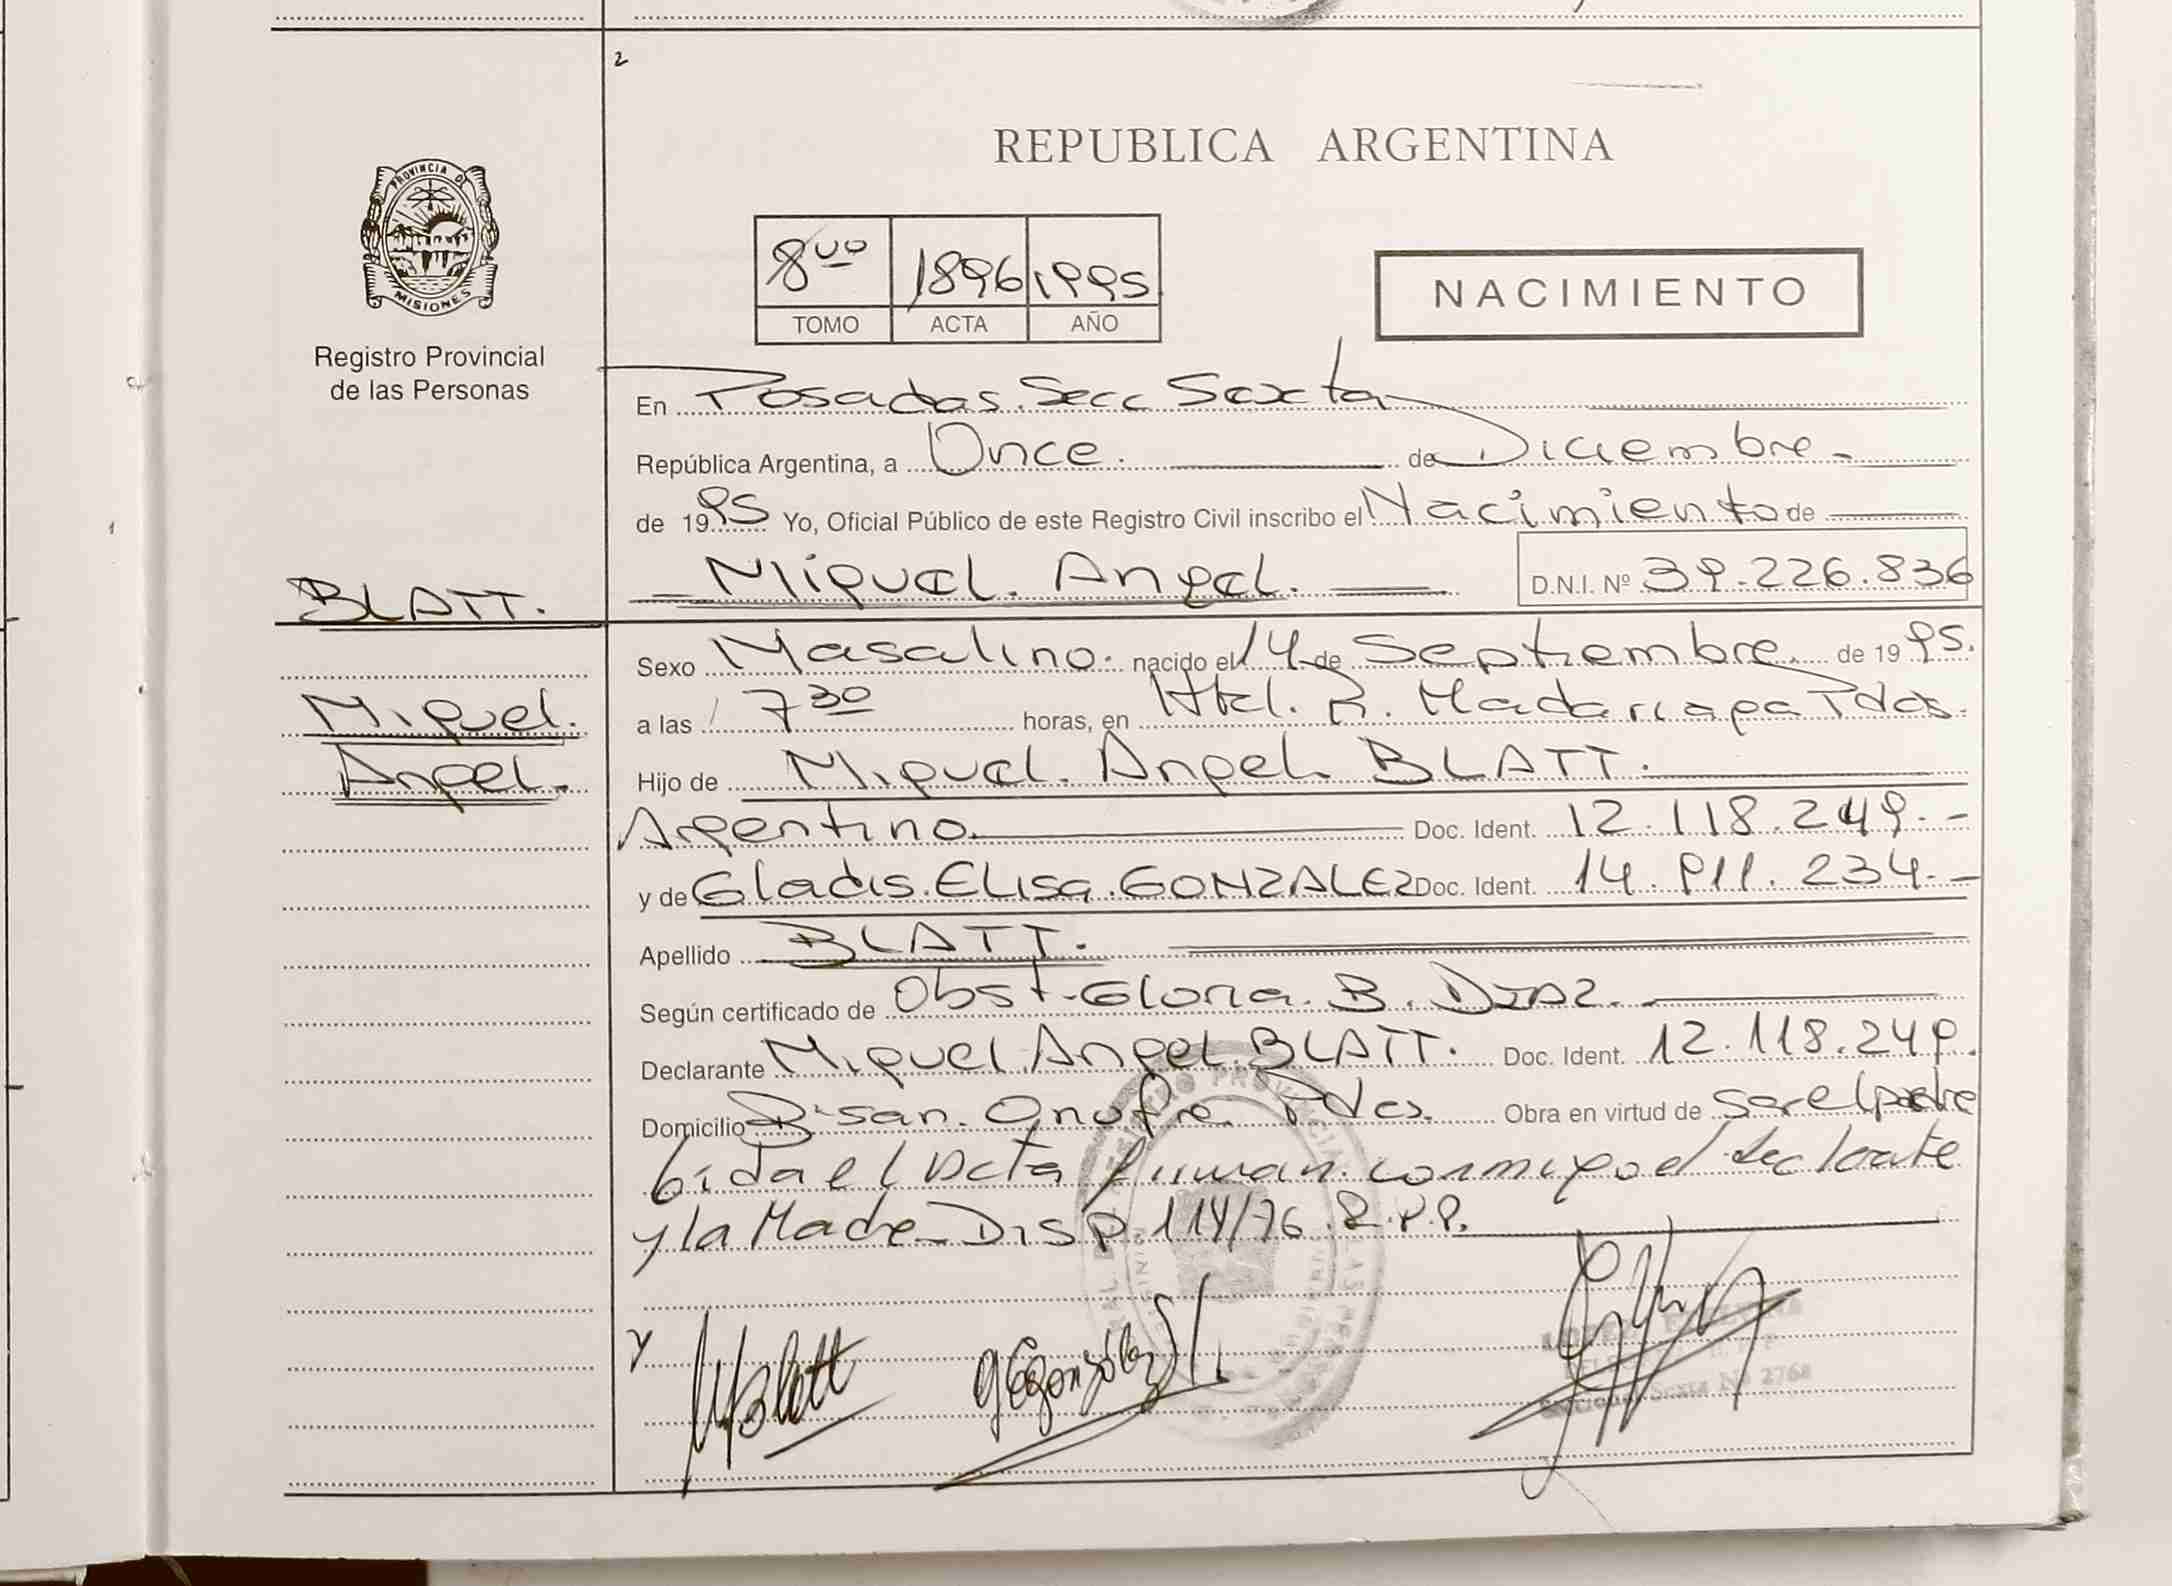 2
REPUBLICA ARGENTINA
PROVINCIA DE
MISIONES
Registro Provincial
de las Personas
8vo 1896 1995
TOMO ACTA AÑO
NACIMIENTO
En Posadas. Secc Sexta
República Argentina, a Once. de Diciembre.-
de 1995 Yo, Oficial Público de este Registro Civil inscribo el Nacimiento de
Miguel. Angel. D.N.I. Nº 39.226.836
BLATT.
Miguel.
Angel.
Sexo Masculino. nacido el 14 de Septiembre. de 1995.
a las 7 30 horas, en Htal. R. Madariaga Pdas.
Hijo de Miguel. Angel. BLATT.
Argentino. Doc. Ident. 12.118.249.-
y de Gladis. Elisa. GONZALEZ Doc. Ident. 14.911.234.-
Apellido BLATT.
Según certificado de Obst. Gloria. B. Diaz.
Declarante Miguel. Angel. BLATT. Doc. Ident. 12.118.249.
Domicilio B. San. Onofre. Pdas. Obra en virtud de ser el padre
Leida el Acta firman conmigo el declarante
y la Madre - Disp. 114/76. R.P.P.
MBlatt GEGonzález
Sexta Nº 2768